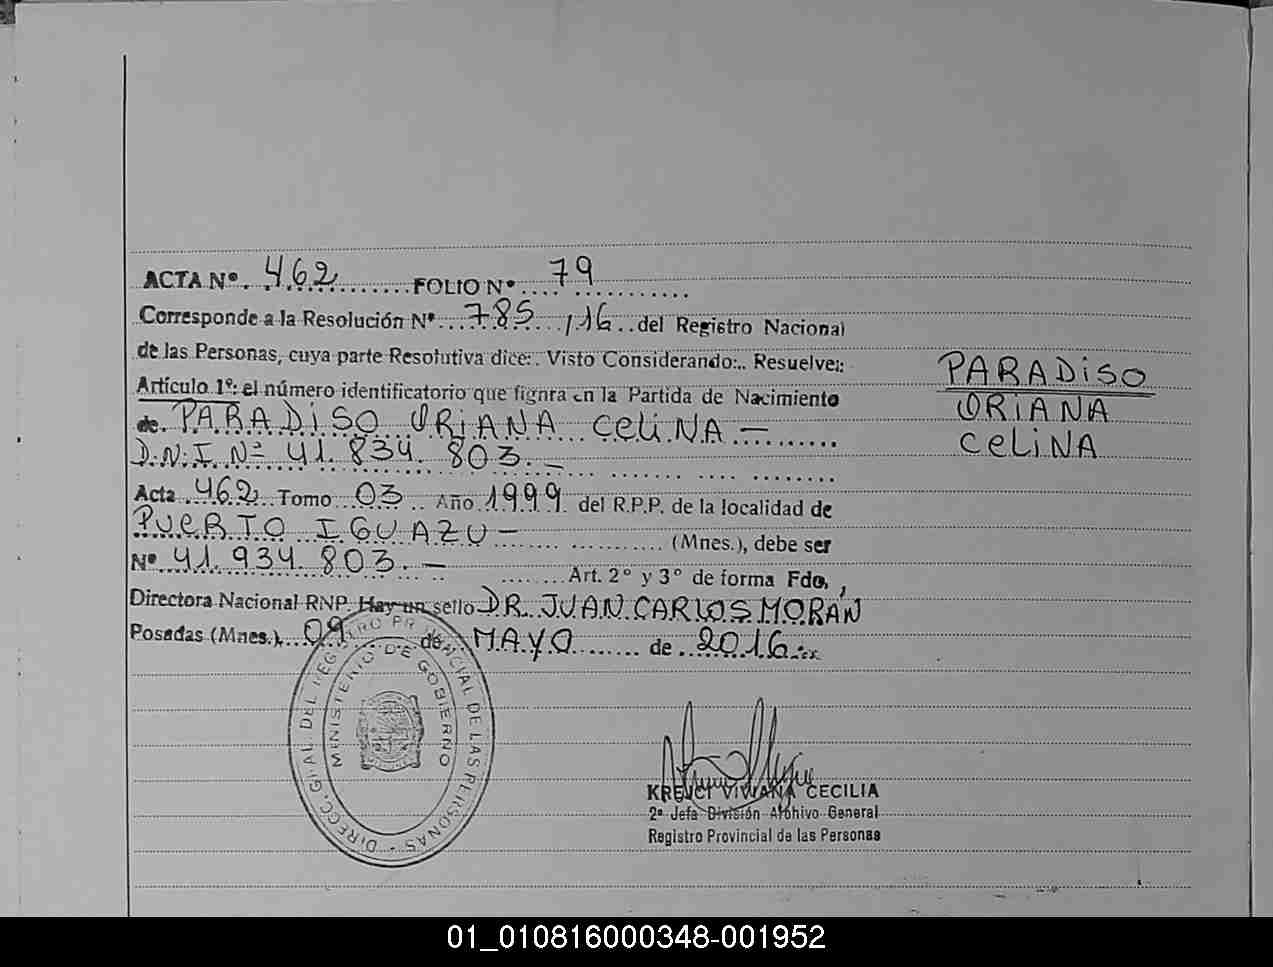 ACTA Nº. 462 FOLIO Nº 79
Corresponde a la Resolución Nº 785 /16 del Registro Nacional
de las Personas, cuya parte Resolutiva dice:. Visto Considerando:.. Resuelve:
Artículo 1º: el número identificatorio que figura en la Partida de Nacimiento
de. PARADISO ORIANA CELINA -
D.N.I. Nº 41.834.803.-
Acta 462 Tomo 03 Año 1999 del R.P.P. de la localidad de
PUERTO IGUAZU - (Mnes.), debe ser
Nº 41.934.803.- Art. 2º y 3º de forma Fdo,
Directora Nacional RNP. Hay un sello DR. JUAN CARLOS MORAN
Posadas (Mnes.). 09 de MAYO de 2016.
PARADISO
ORIANA
CELINA
DIRECC. GRAL. DEL REGISTRO PROVINCIAL DE LAS PERSONAS -
MINISTERIO DE GOBIERNO
KREUCI VIVIANA CECILIA
2ª Jefa División Archivo General
Registro Provincial de las Personas
01_010816000348-001952